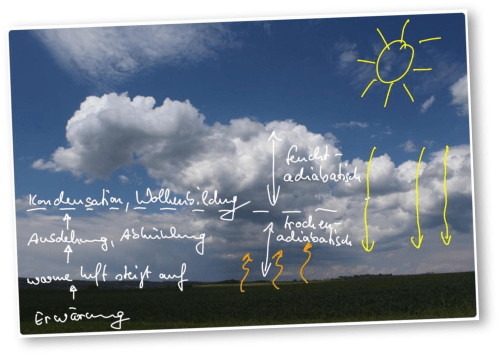 feucht-
adiabatisch
Kondensation, Wolkenbildung
trocken-
adiabatisch
Ausdehnung, Abkühlung
warme Luft steigt auf
Erwärmung